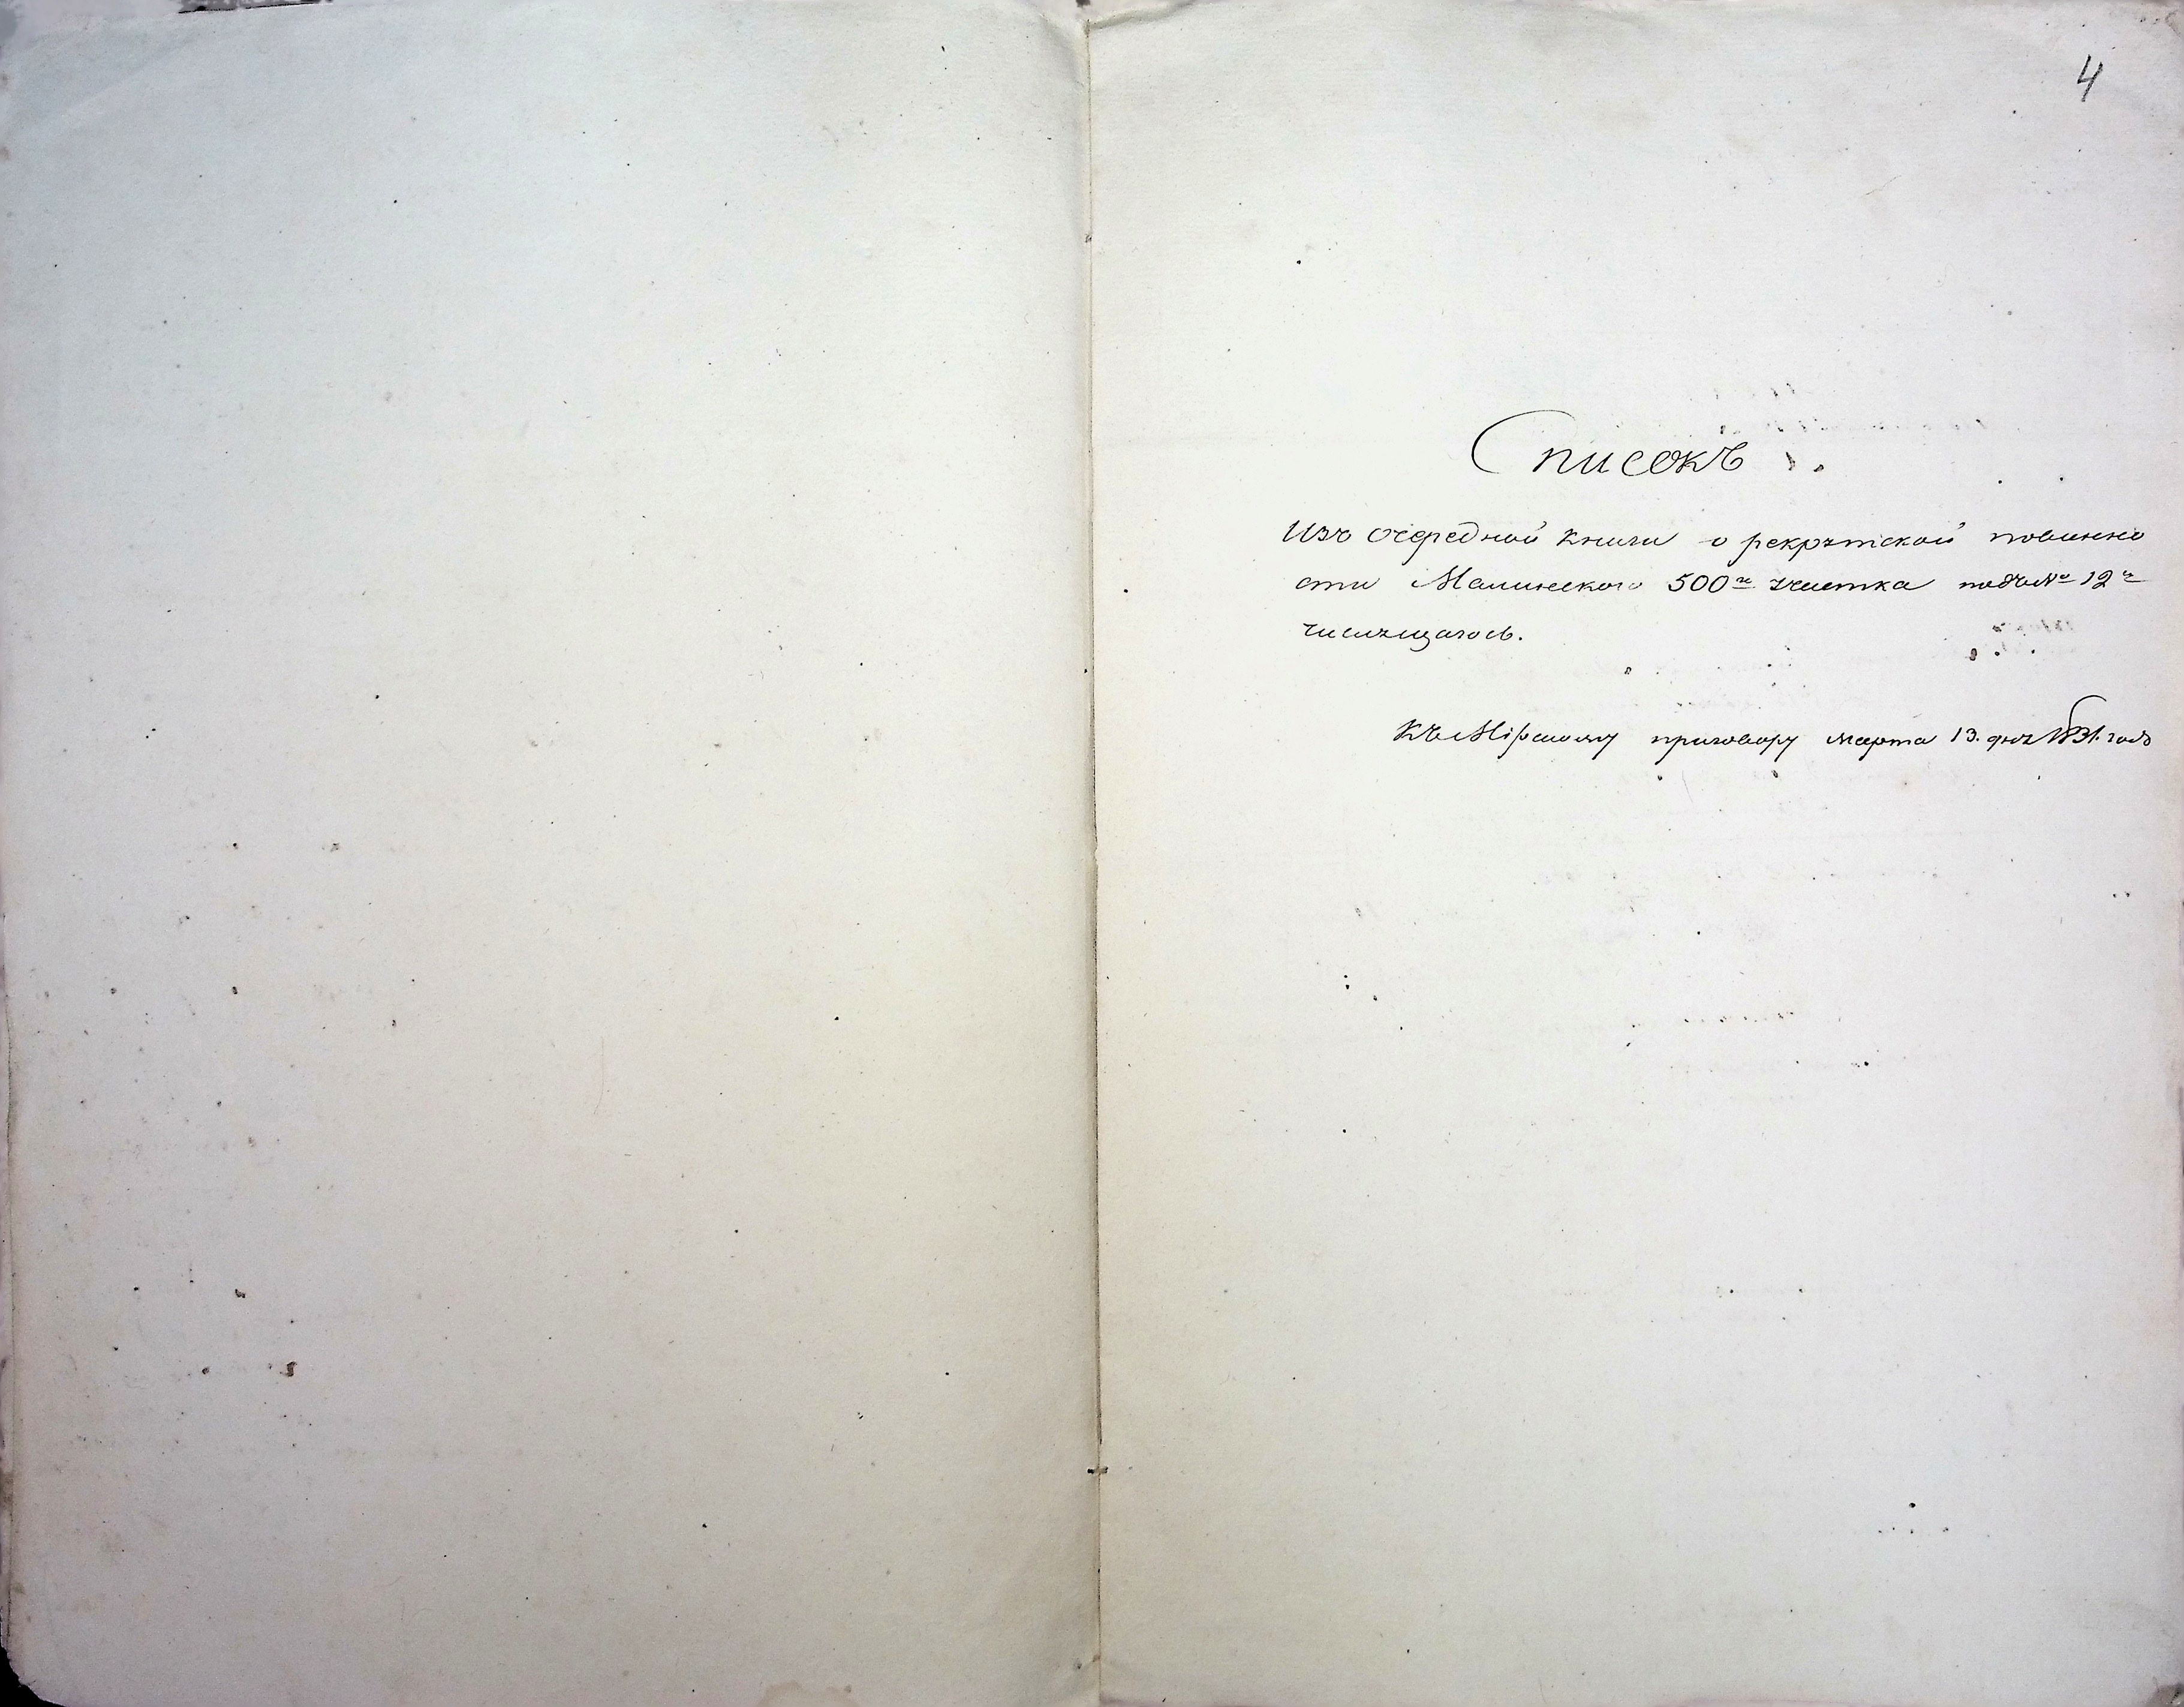 4
Списокъ
Изъ очередной книги о рекрутской повинно
сти Малинского 500го участка подъ № 12м
числущагось.
Къ Мірскому приговору марта 13. дня 1831. года